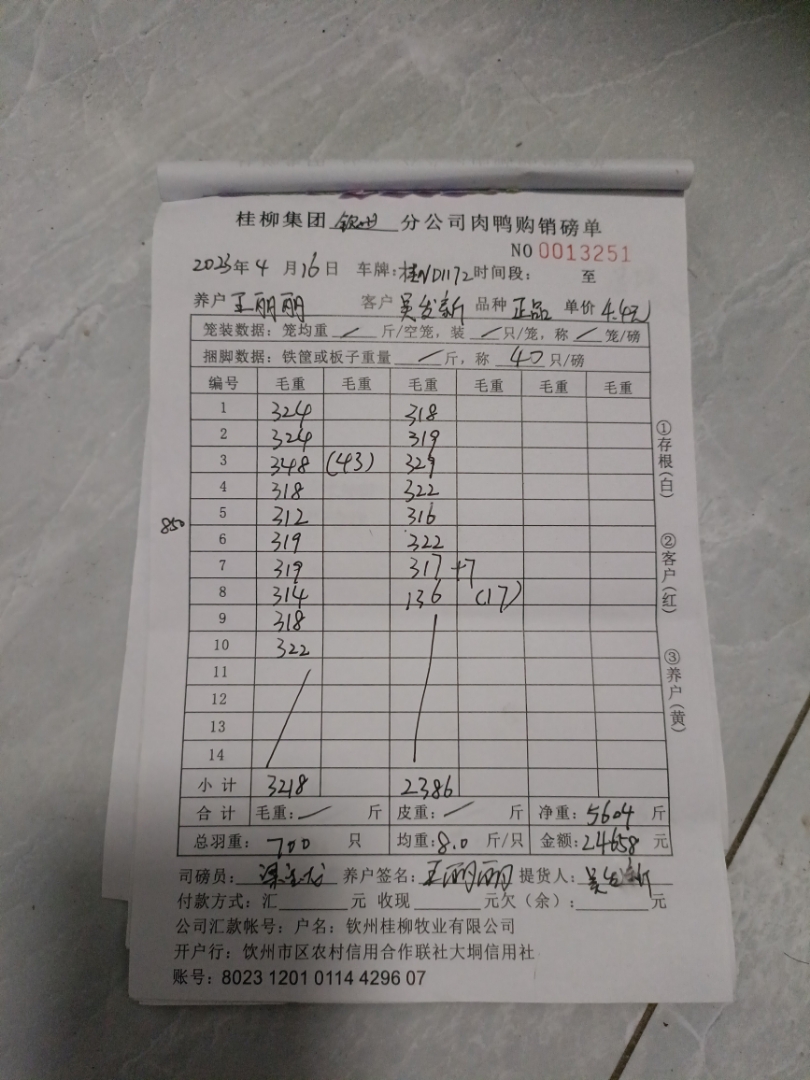 桂柳集团 钦州 分公司肉鸭购销磅单
NO 0013251
2023年4月16日 车牌：桂ND1172 时间段： 至
养户 王丽丽 客户 吴发新 品种 正品 单价 4.4元
笼装数据：笼均重 / 斤/空笼，装 / 只/笼，称 / 笼/磅
捆脚数据：铁筐或板子重量 / 斤，称 40 只/磅
编号 毛重 毛重 毛重 毛重 毛重 毛重
1 324 318
2 324 319
3 348 (43) 329
4 318 322
5 312 316
6 319 322
7 319 317 +7
8 314 136 (17)
9 318
10 322
11
12
13
14
小计 3218 2386
合计 毛重：/ 斤 皮重：/ 斤 净重：5604 斤
总羽重：700 只 均重：8.0 斤/只 金额：24658 元
司磅员： 养户签名：王丽丽 提货人：吴发新
付款方式：汇 元 收现 元欠（余）： 元
公司汇款帐号：户名：钦州桂柳牧业有限公司
开户行：钦州市区农村信用合作联社大垌信用社
账号：8023 1201 0114 4296 07
①存根（白）
②客户（红）
③养户（黄）
850